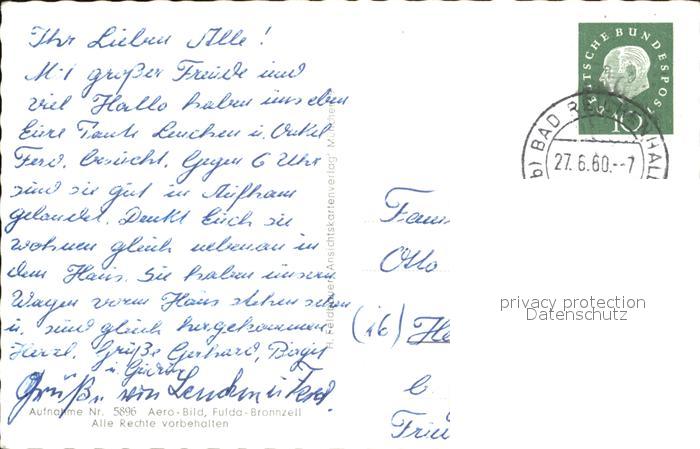 Ihr Lieben Alle!
Mit großer Freude und
viel Hallo haben uns eben
Eure Tante Lenchen u. Onkel
Ferd. besucht. Gegen 6 Uhr
sind sie gut in Aufham
gelandet. Denkt Euch sie
wohnen gleich nebenan in
dem Haus. Sie haben unsern
Wagen vorm Haus stehen sehen
u. sind gleich hergekommen
Herzl. Grüße Gerhard, Birgit
u. Gudrun
Grüße von Lenchen u. Ferd.
Aufnahme Nr. 5896 Aero-Bild, Fulda-Bronnzell
Alle Rechte vorbehalten
Ansichtskartenverlag
DEUTSCHE BUNDESPOST
10
BAD REICHENHALL
27.6.60.--7
Fam
Otto
(16) He
privacy protection
Datenschutz